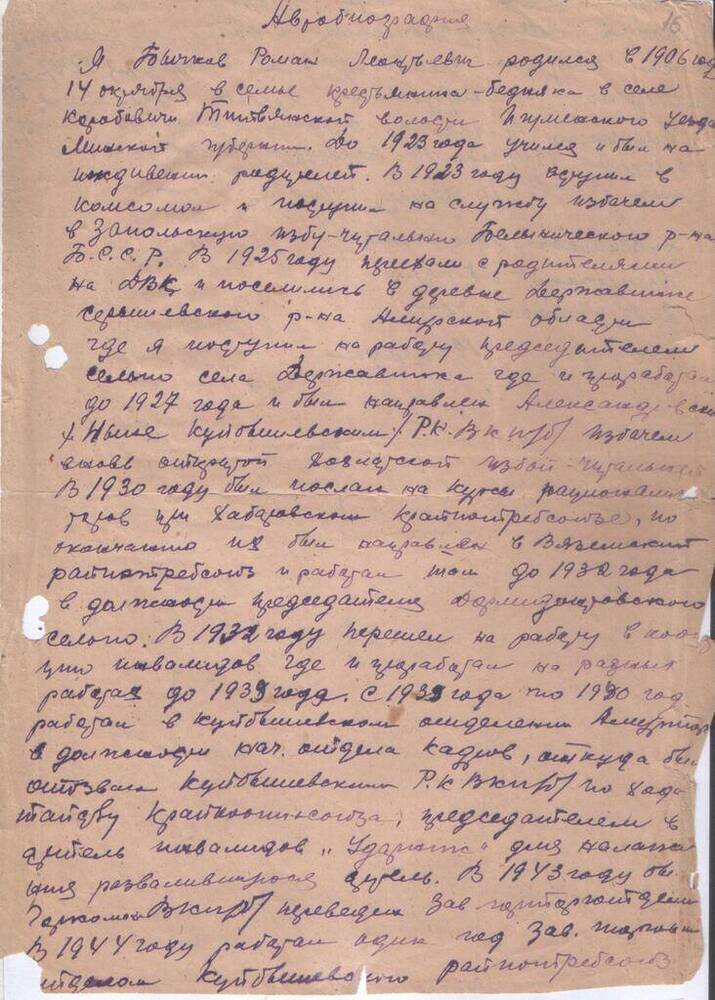 Автобиография
16
Я Бычков Роман Леонтьевич родился в 1906 год
14 октября в семье крестьянина-бедняка в селе
Карабовичи волости Игуменского уезда
Минской губернии. До 1923 года учился и был на
иждивении родителей. В 1923 году вступил в
комсомол и поступил на службу избачем
в Запольскую избу-читальню Белынического р-на
Б.С.С.Р. В 1925 году приехали с родителями
на ДВК и поселились в деревне Державинке
Серышевского р-на Амурской области
где я поступил на работу председателем
сельпо села Державинка где и проработал
до 1927 года и был направлен Александровским
/Ныне Куйбышевским/ Р.К.ВКП/б/ избачем
вновь открытой избой-читальней
В 1930 году был послан на курсы рационализа
торов при Хабаровском Крайпотребсоюзе, по
окончанию их был направлен в Вяземский
райпотребсоюз и работал там до 1932 года
в должности председателя Дормидонтовского
сельпо. В 1932 году перешел на работу в кооп
цию инвалидов где и проработал на разных
работах до 1939 года. С 1939 года по 1940 год
работал в Куйбышевском отделении Амурторг
в должности нач. отдела кадров, откуда был
отозван Куйбышевским Р.К ВКП/б/ по хода
тайству председателем в
артель инвалидов „Ударник" для налажи
ния развалившуюся артель. В 1943 году бы
Горкомом ВКП/б/ переведен Зав.
В 1944 году работал один год Зав. торговы
отделом Куйбышевского райпотребсоюз